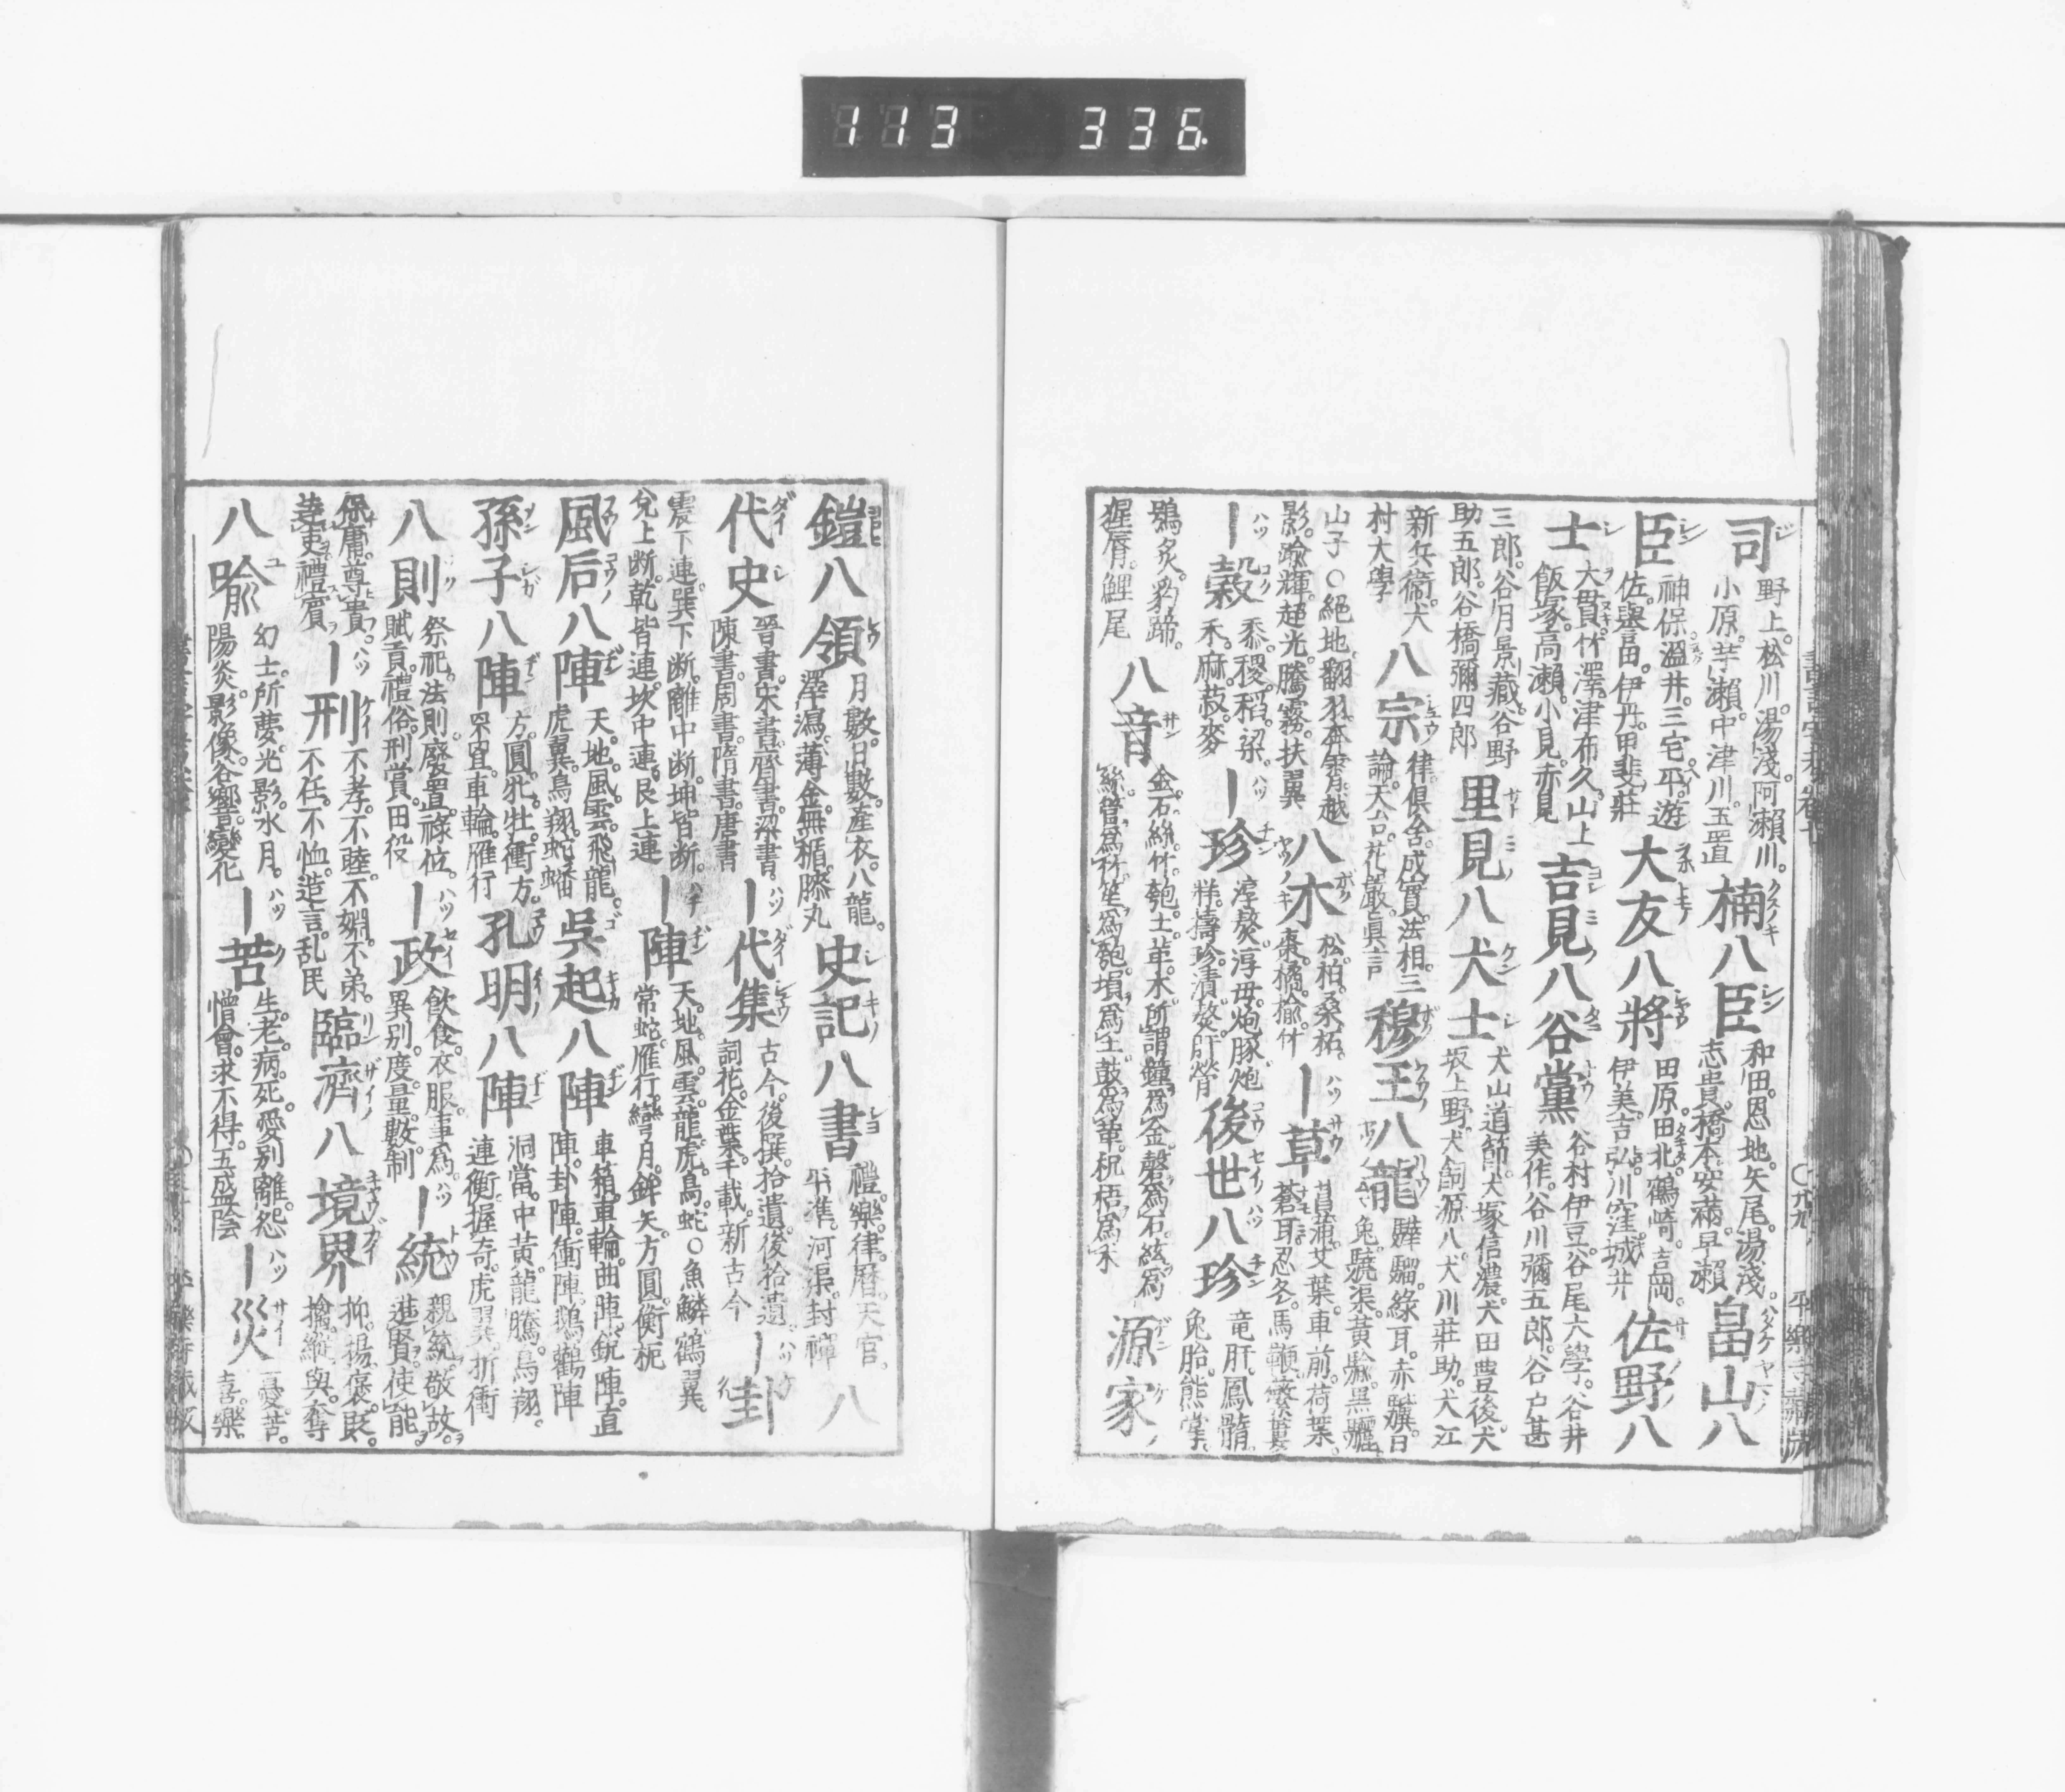 113 336
司 野上。松川。湯淺。阿瀨川。小原。芋瀨。中津川。玉置 楠八臣 和田。恩地。矢尾。湯淺。志貴。橋本。安滿。早瀨 畠山八
臣 神保。溫井。三宅。平。遊佐。譽田。伊丹。甲斐莊 大友八將 田原。田北。鶴崎。吉岡。伊美。吉弘。川窪。城井 佐野八
士 大貫。竹澤。津布久。山上 飯塚。高瀨。小見。赤見 吉見八谷黨 谷村伊豆。谷尾六學。谷井美作。谷川彌五郎。谷戸甚
三郎。谷月景藏。谷野助五郎。谷橋彌四郎 里見八犬士 犬山道節。犬塚信濃。犬田豊後。犬坂上野。犬飼源八。犬川莊助。犬江
新兵衞。犬村大學 八宗 律。俱舍。成實。法相。三論。天台。花嚴。眞言 穆王八龍 驊騮。綠耳。赤驥。白兔。驍渠。黃驗。黑驪
山子○絕地。翻羽。奔霄。越影。踰輝。超光。騰霧。扶翼 八木 松。柏。桑。柘。棗。橘。揄。竹 ｜草 菖蒲。艾葉。車前。荷葉。蒼耳。忍冬。馬鞭。蘩蔞
｜穀 黍。稷。稻。粱。禾。麻。菽。麥 ｜珍 淳熬。淳母。炮豚。炮牂。擣珍。漬。熬。肝膋 後世八珍 竜肝。鳳髓。兔胎。熊掌。
鶚炙。豹蹄。猩脣。鯉尾 八音 金。石。絲。竹。匏。土。革。木。所謂鐘爲金。磬爲石。絃爲絲。管爲竹。笙爲匏。塤爲土。鼓爲革。柷梧爲木 源家
鎧八領 月數。日數。產衣。八龍。澤瀉。薄金。無楯。膝丸 史記八書 禮。樂。律。曆。天官。平準。河渠。封禪 八
代史 晉書。宋書。齊書。梁書。陳書。周書。隋書。唐書 ｜代集 古今。後撰。拾遺。後拾遺。詞花。金葉。千載。新古今 ｜卦
震下連。巽下断。離中断。坤皆断。兌上断。乾皆連。坎中連。艮上連 ｜陣 天。地。風。雲。龍。虎。鳥。蛇○魚鱗。鶴翼。常蛇。雁行。彎月。鉾矢。方圓。衡軛
風后八陣 天。地。風。雲。飛龍。虎翼。鳥翔。蛇蟠 吳起八陣 車箱。車輪。曲陣。銳陣。直陣。卦陣。衝陣。鵝鸛陣
孫子八陣 方。圓。牝。牡。衝方。罘罝。車輪。雁行 孔明八陣 洞當。中黃。龍騰。鳥翔。連衡。握奇。虎翼。折衝
八則 祭祀。法則。廢置。祿位。賦貢。禮俗。刑賞。田役 ｜政 飲食。衣服。事爲。異別。度。量。數。制 ｜統 親親。敬故。進賢。使能。
保庸。尊貴。達吏。禮賓 ｜刑 不孝。不睦。不婣。不弟。不任。不恤。造言。乱民 臨濟八境界 抑。揚。褒。貶。擒。縱。與。奪
八喩 幻士。所夢。光影。水月。陽炎。影像。谷響。變化 ｜苦 生。老。病。死。愛別離。怨憎會。求不得。五盛陰 ｜災 憂。苦。喜。樂。